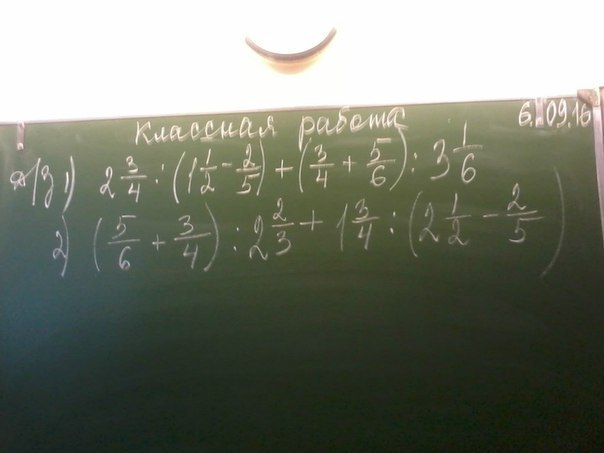 Классная работа 6.09.16
д/з 1) 2 3/4 : (1 1/2 - 2/5) + (3/4 + 5/6) : 3 1/6
2) (5/6 + 3/4) : 2 2/3 + 1 3/4 : (2 1/2 - 2/5)